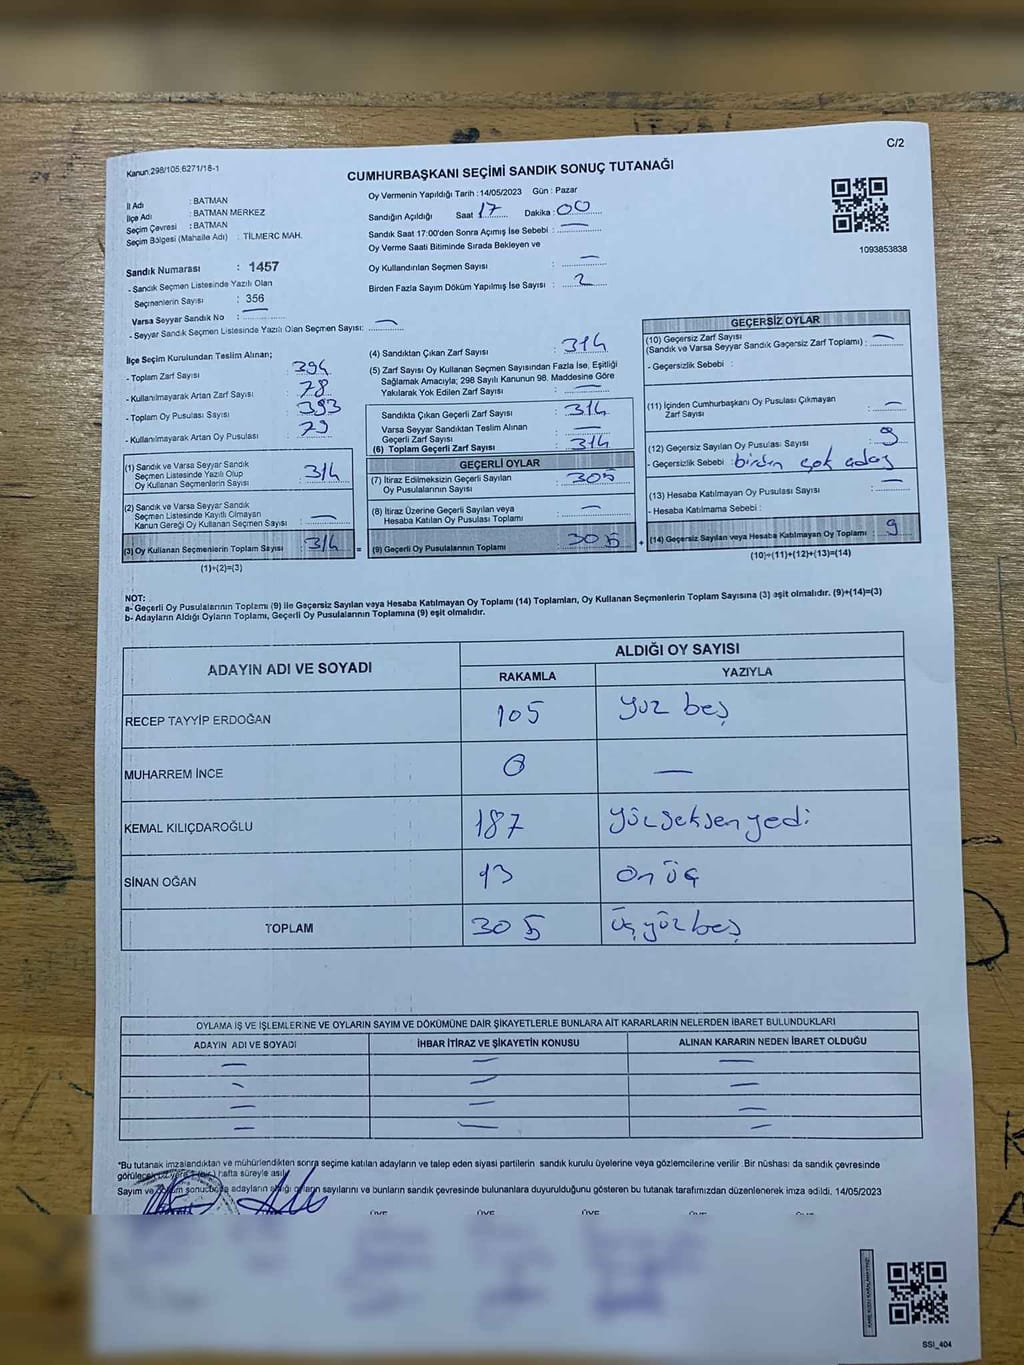 C/2
Kanun:298/105,6271/18-1
CUMHURBAŞKANI SEÇİMİ SANDIK SONUÇ TUTANAĞI
İl Adı : BATMAN
İlçe Adı : BATMAN MERKEZ
Seçim Çevresi : BATMAN
Seçim Bölgesi (Mahalle Adı) : TİLMERC MAH.
Oy Vermenin Yapıldığı Tarih : 14/05/2023 Gün : Pazar
Sandığın Açıldığı Saat 17 Dakika : 00
Sandık Saat 17:00'den Sonra Açımış İse Sebebi : —
Oy Verme Saati Bitiminde Sırada Bekleyen ve
Oy Kullandırılan Seçmen Sayısı : —
Birden Fazla Sayım Döküm Yapılmış İse Sayısı : 2
1093853838
Sandık Numarası : 1457
- Sandık Seçmen Listesinde Yazılı Olan
Seçmenlerin Sayısı : 356
Varsa Seyyar Sandık No : —
- Seyyar Sandık Seçmen Listesinde Yazılı Olan Seçmen Sayısı: —
İlçe Seçim Kurulundan Teslim Alınan;
- Toplam Zarf Sayısı : 394
- Kullanılmayarak Artan Zarf Sayısı : 78
- Toplam Oy Pusulası Sayısı : 393
- Kullanılmayarak Artan Oy Pusulası : 79
(1) Sandık ve Varsa Seyyar Sandık
Seçmen Listesinde Yazılı Olup
Oy Kullanan Seçmenlerin Sayısı : 314
(2) Sandık ve Varsa Seyyar Sandık
Seçmen Listesinde Kayıtlı Olmayan
Kanun Gereği Oy Kullanan Seçmen Sayısı : —
(3) Oy Kullanan Seçmenlerin Toplam Sayısı : 314 =
(1)+(2)=(3)
(4) Sandıktan Çıkan Zarf Sayısı : 314
(5) Zarf Sayısı Oy Kullanan Seçmen Sayısından Fazla İse, Eşitliği
Sağlamak Amacıyla; 298 Sayılı Kanunun 98. Maddesine Göre
Yakılarak Yok Edilen Zarf Sayısı : —
Sandıkta Çıkan Geçerli Zarf Sayısı : 314
Varsa Seyyar Sandıktan Teslim Alınan
Geçerli Zarf Sayısı : —
(6) Toplam Geçerli Zarf Sayısı : 314
GEÇERLİ OYLAR
(7) İtiraz Edilmeksizin Geçerli Sayılan
Oy Pusulalarının Sayısı : 305
(8) İtiraz Üzerine Geçerli Sayılan veya
Hesaba Katılan Oy Pusulası Toplamı : —
(9) Geçerli Oy Pusulalarının Toplamı : 305 +
GEÇERSİZ OYLAR
(10) Geçersiz Zarf Sayısı
(Sandık ve Varsa Seyyar Sandık Geçersiz Zarf Toplamı) : —
- Geçersizlik Sebebi :
(11) İçinden Cumhurbaşkanı Oy Pusulası Çıkmayan
Zarf Sayısı : —
(12) Geçersiz Sayılan Oy Pusulası Sayısı : 9
- Geçersizlik Sebebi : birden çok aday
(13) Hesaba Katılmayan Oy Pusulası Sayısı : —
- Hesaba Katılmama Sebebi :
(14) Geçersiz Sayılan veya Hesaba Katılmayan Oy Toplamı : 9
(10)+(11)+(12)+(13)=(14)
NOT:
a- Geçerli Oy Pusulalarının Toplamı (9) ile Geçersiz Sayılan veya Hesaba Katılmayan Oy Toplamı (14) Toplamları, Oy Kullanan Seçmenlerin Toplam Sayısına (3) eşit olmalıdır. (9)+(14)=(3)
b- Adayların Aldığı Oyların Toplamı, Geçerli Oy Pusulalarının Toplamına (9) eşit olmalıdır.
ADAYIN ADI VE SOYADI ALDIĞI OY SAYISI
RAKAMLA YAZIYLA
RECEP TAYYİP ERDOĞAN 105 yüz beş
MUHARREM İNCE 0 —
KEMAL KILIÇDAROĞLU 187 yüzseksenyedi
SİNAN OĞAN 13 on üç
TOPLAM 305 üçyüzbeş
OYLAMA İŞ VE İŞLEMLERİNE VE OYLARIN SAYIM VE DÖKÜMÜNE DAİR ŞİKAYETLERLE BUNLARA AİT KARARLARIN NELERDEN İBARET BULUNDUKLARI
ADAYIN ADI VE SOYADI İHBAR İTİRAZ VE ŞİKAYETİN KONUSU ALINAN KARARIN NEDEN İBARET OLDUĞU
— — —
— — —
— — —
— — —
*Bu tutanak imzalandıktan ve mühürlendikten sonra seçime katılan adayların ve talep eden siyasi partilerin sandık kurulu üyelerine veya gözlemcilerine verilir. Bir nüshası da sandık çevresinde
hafta süreyle asılı
Sayım ve sonucunda adayların aldığı oyların sayılarını ve bunların sandık çevresinde bulunanlara duyurulduğunu gösteren bu tutanak tarafımızdan düzenlenerek imza edildi. 14/05/2023
ÜYE ÜYE ÜYE ÜYE
SSİ_404